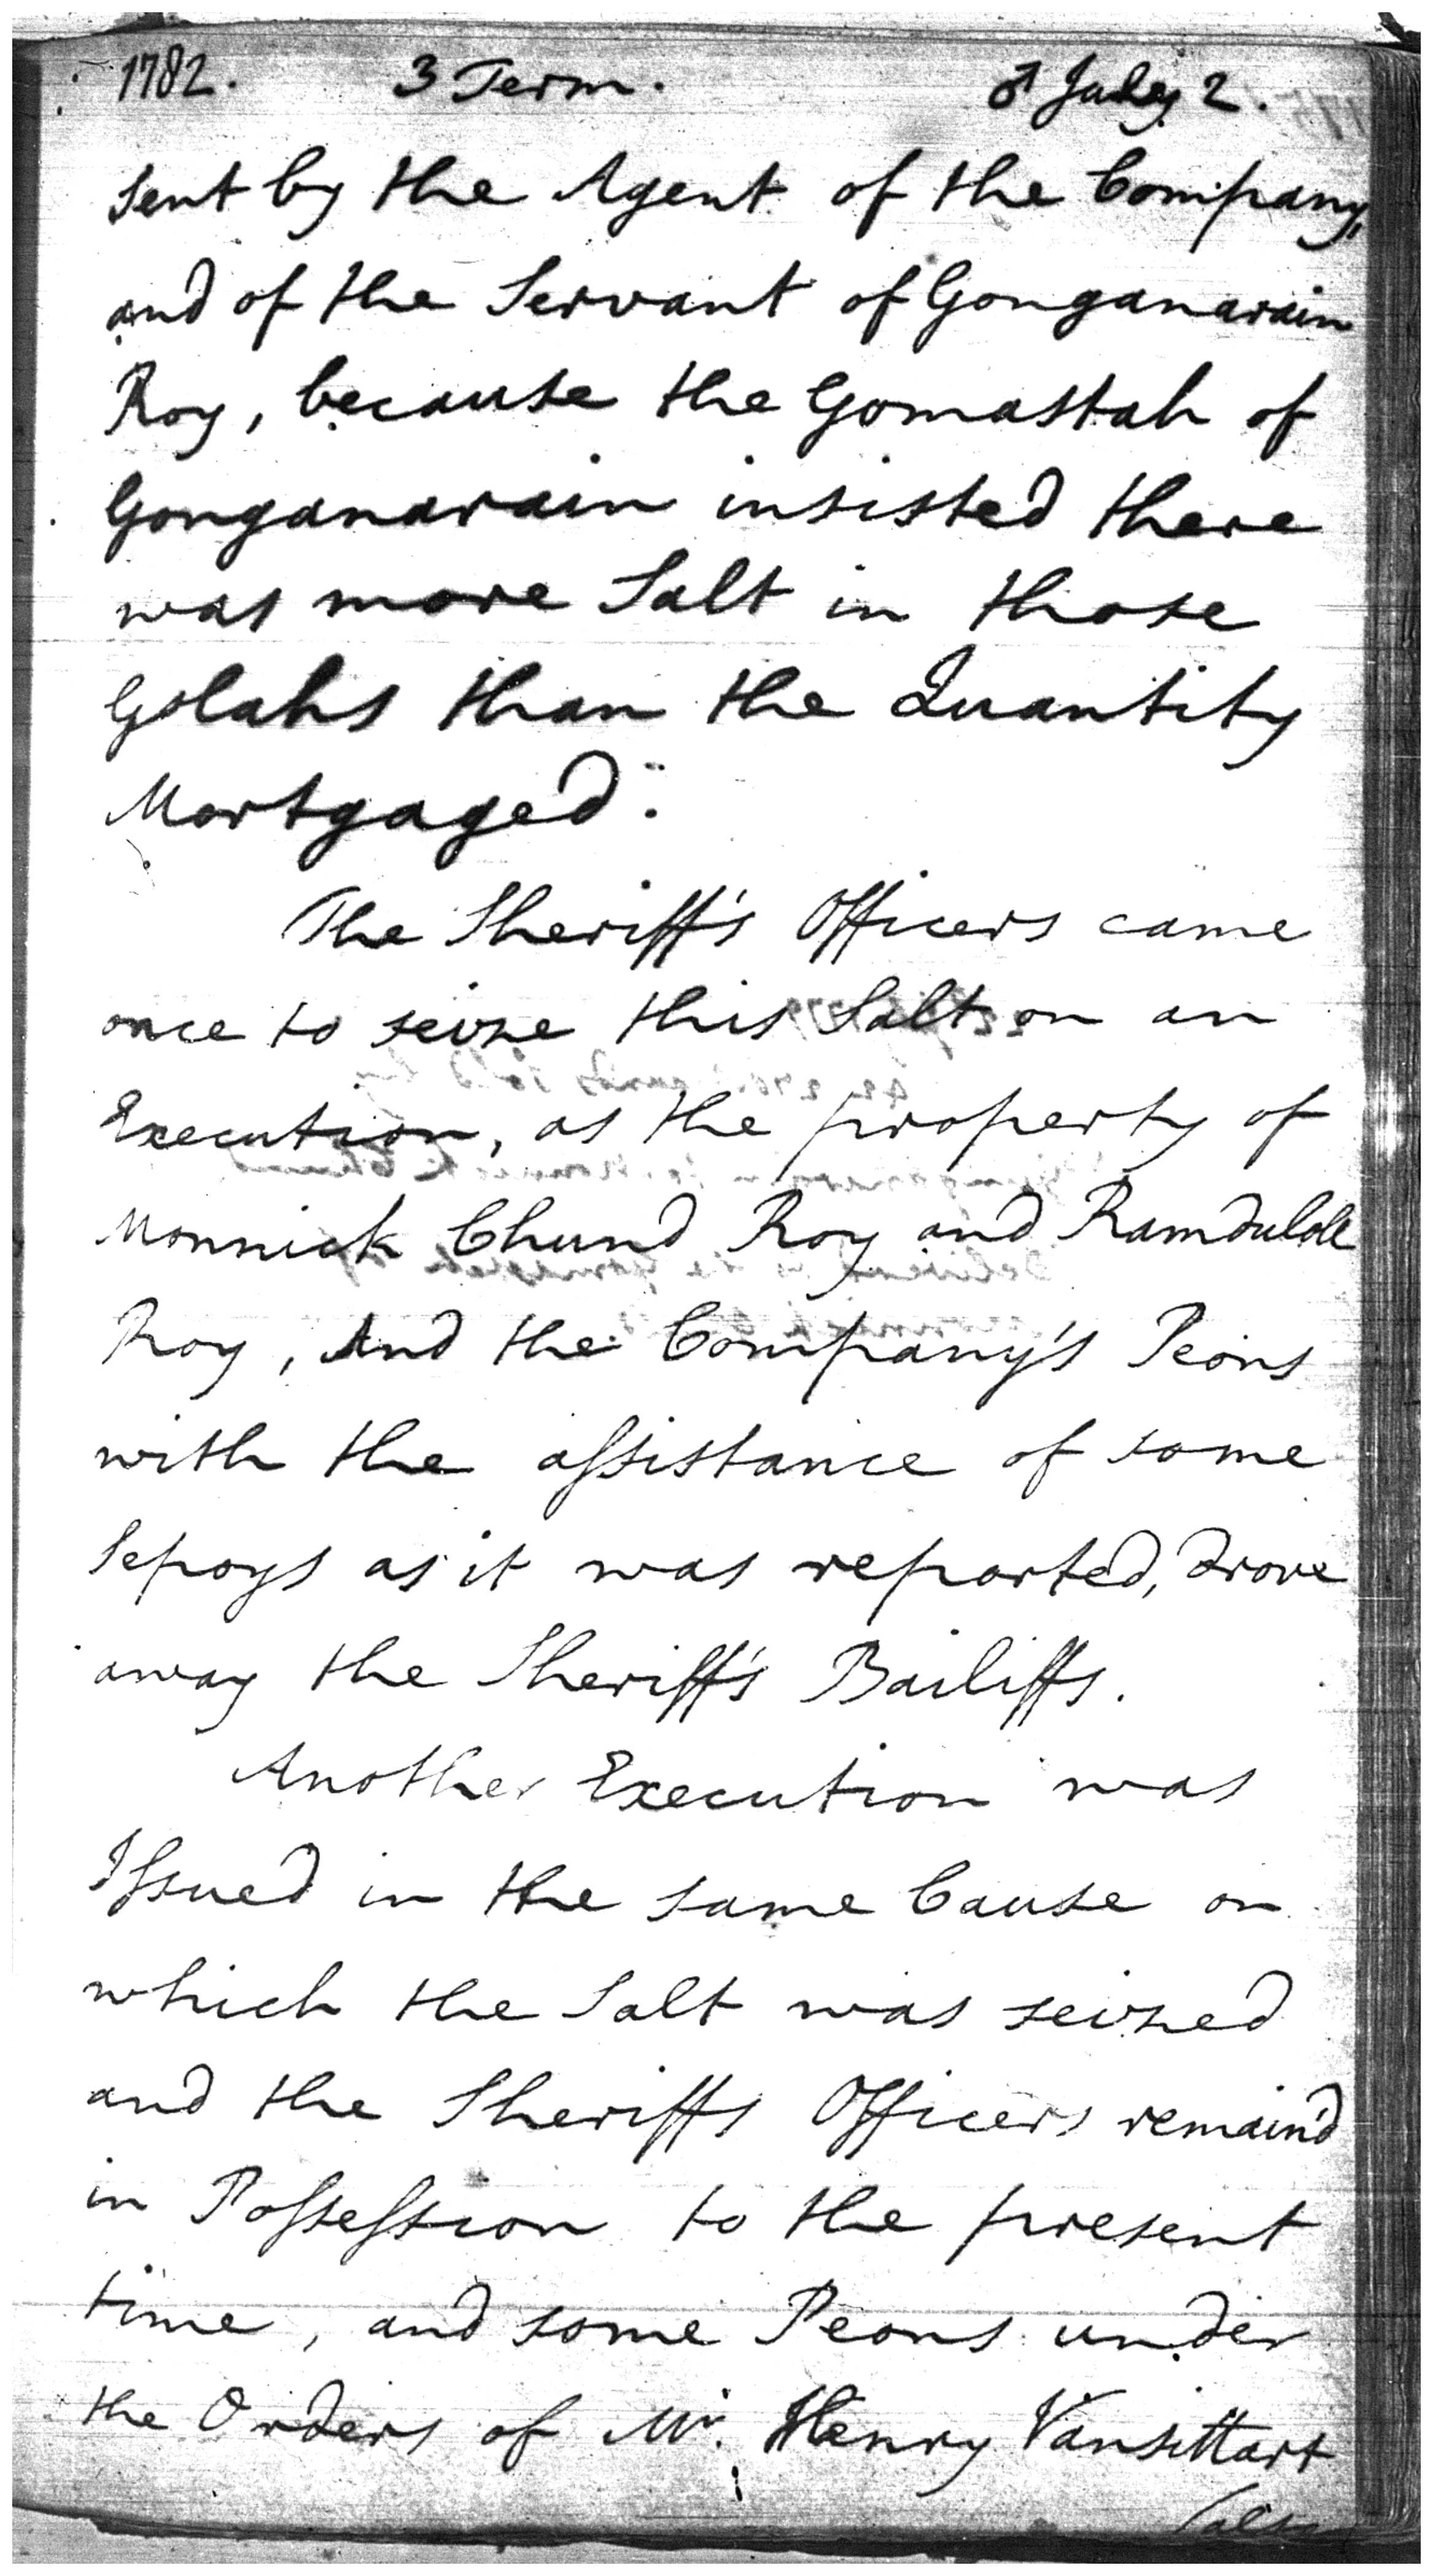 1782. 3 Term. ♂ July 2.
sent by the Agent of the Company,
and of the Servant of Gonganarain
Roy, because the Gomastah of
Gonganarain insisted there
was more Salt in those
Golahs than the Quantity
Mortgaged."
The Sheriff's Officers came
once to seize this Salt on an
Execution, as the property of
Monnick Chund Roy and Ramdulol
Roy, And the Company's Peons
with the assistance of some
Sepoys as it was reported, drove
away the Sheriff's Bailiffs.
Another Execution was
Issued in the same Cause on
which the Salt was seized
and the Sheriffs Officers remain'd
in Possession to the present
time, and some Peons under
the Orders of Mr. Henry Vansittart